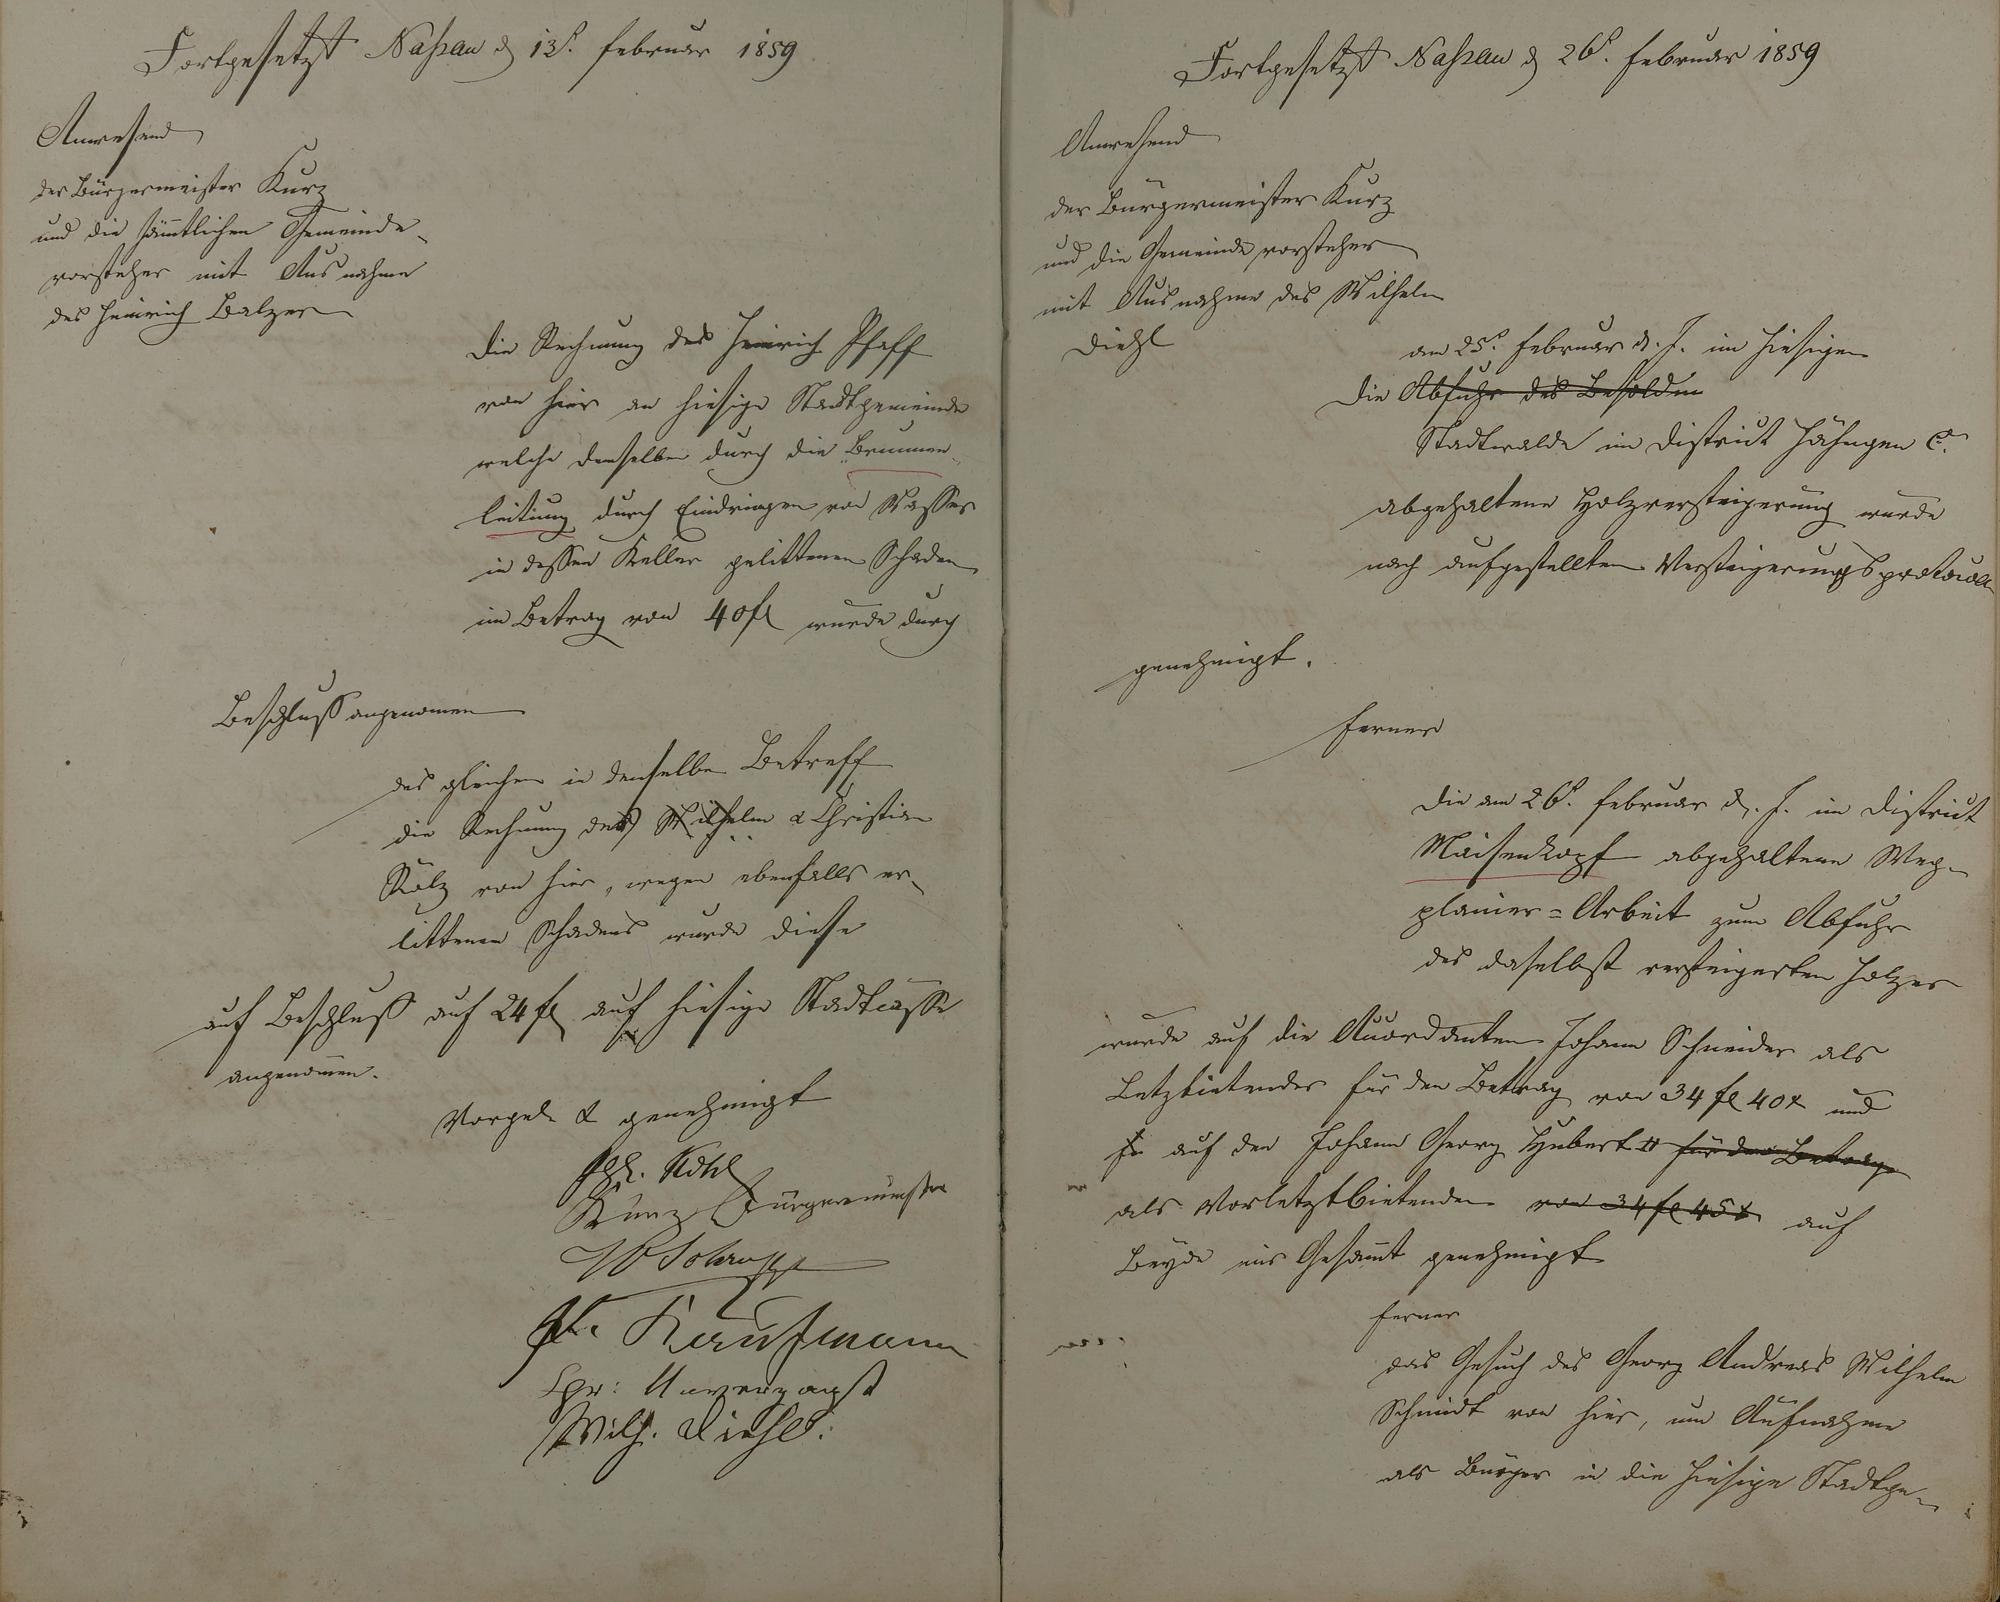 Fortgesetzt Nassau d 13t. Februar 1859
Anwesend
der Bürgermeister Kurz
und die sämtlichen Gemeinde-
vorsteher mit Ausnahme
des Heinrich Balzer
Die Rechnung des Heinrich Pfaff
von hier an hiesige Stadtgemeinde
welche denselben durch die Brunnen-
leitung durch Eindringen von Wasser
in dessen Keller gelittenen Schaden
im Betrag von 40 fl wurde durch
Beschluß angenomen
des gleichen in denselben Betreff
die Rechnung des Wilhelm & Christian
von hier, wegen ebenfalls er-
littenen Schadens wurde diese
auf Beschluß auf 24 fl auf hiesige Stadtcasse
angenomen.
Vorgel. & genehmigt
Kurz Bürgermeister
Kaufmann
Unverzagt
Wilh. Diehl.
Fortgesetzt Nassau d 26t. Februar 1859
Anwesend
der Bürgermeister Kurz
und die Gemeindevorsteher
mit Ausnahme des Wilhelm
Diehl
am 25t. Februar d. J. im hiesigen
Die Abfuhr des
Stadtwalde im District Hähngen C.
abgehaltene Holzversteigerung wurde
nach aufgestelltem Versteigerungsprotocoll
genehmigt.
Ferner
Die am 26t. Februar d. J. im District
Maisenkopf abgehaltene Weg-
planier=Arbeit zum Abfuhr
des daselbst versteigerten Holzes
wurde auf die Accordanten Johann Schneider als
Letzbietender für den Betrag von 34 fl 40 x und
auf den Johann Georg Hubert II für den Betrag
als Vorletztbietenden von 34 fl 45 x auf
Beyde ins Gesamt genehmigt
Ferner
das Gesuch des Georg Andreas Wilhelm
Schmidt von hier, um Aufnahme
als Bürger in die hiesige Stadtge-